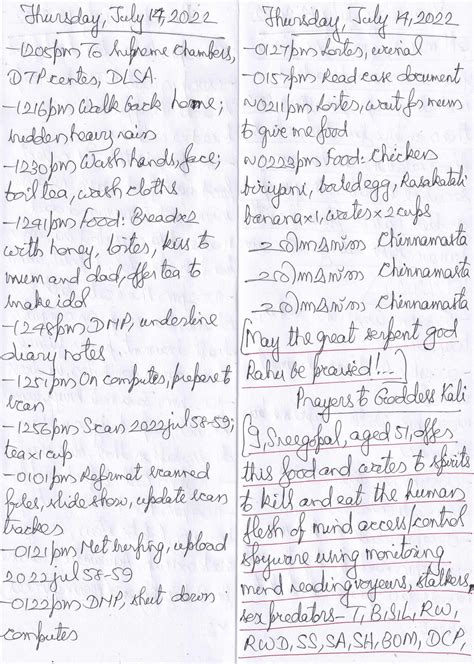 Thursday, July 14, 2022
-1205pm To Supreme Chambers,
DTP centes, DLSA
-1216pm Walk back home;
sudden heavy rain
-1230pm Wash hands, face;
boil tea, wash cloths
-1241pm Food: Breadx2
with honey, lorites, kiss to
mum and dad, offer tea to
snake idol
-1248pm DMP, underline
diary notes
-1251pm On computes, prepare to
scan
-1256pm Scan 2022jul58-59;
teax1cup
-0101pm Reformat scanned
files, slide show, update scan
trackes
-0121pm Net surfing, upload
2022jul58-59
-0122pm DMP, shut down
computes
Thursday, July 14, 2022
-0127pm lorites, urinal
-0157pm Read case document
~0211pm lorites, wait for mum
to give me food
~0222pm Food: Chicken
biriyani, boiled egg, Rasakatali
bananax1, watesx2cups
Chinnamasta
Chinnamasta
Chinnamasta
[May the great serpent god
Rahu be praised!...]
Prayers to Goddess Kali
[I, Sreegopal, aged 51, offes
this food and wates to spirits
to kill and eat the human
flesh of mind access/control
spyware using monitoring
mind reading voyeurs, stalkers,
sex predators-T, B, S, L, RW,
RWD, SS, SA, SH, BOM, DCP,